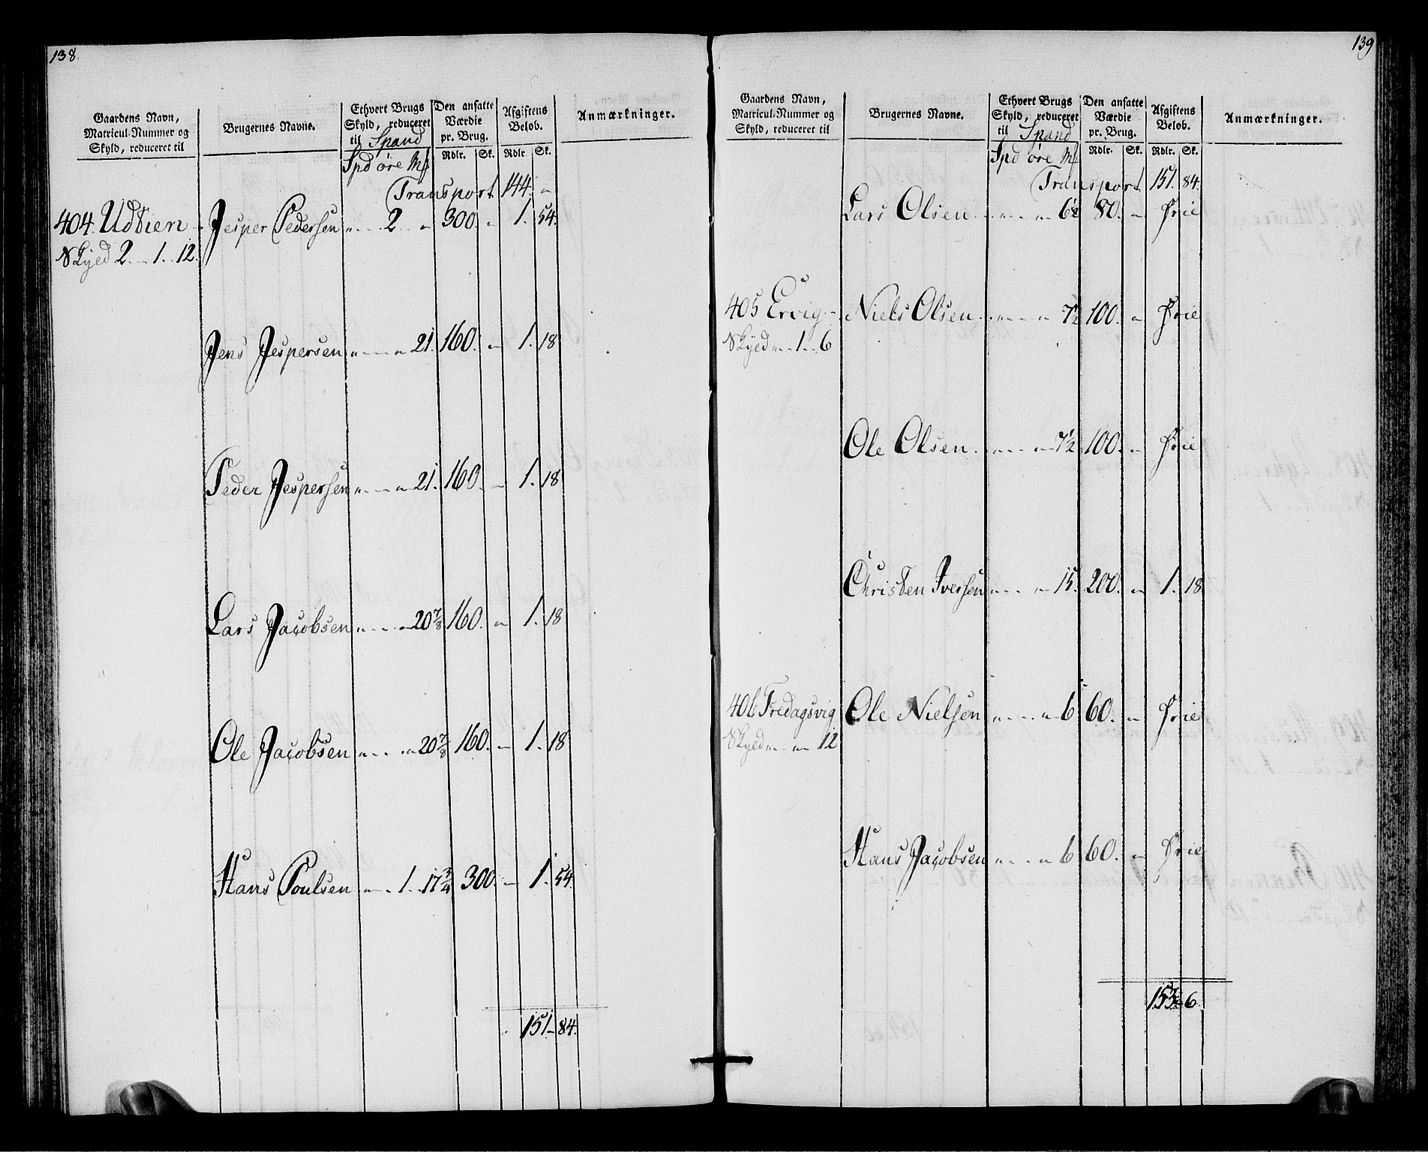 138
Gaardens Navn, Matricul-Nummer og Skyld, reduceret til
Brugernes Navne.
Ethvert Brugs Skyld, reduceret til Spand
Spd øre Mk
Den ansatte Værdie pr. Brug.
Rdlr. Sk.
Afgiftens Beløb.
Rdlr. Sk.
Anmærkninger.
Transport 144. "
404. Udvien Jesper Pedersen " 2 " 300. " 1. 54.
Skyld 2 " 1. 12.
Jens Jespersen " " 21. 160. " 1. 18
Peder Jespersen " " 21. 160. " 1. 18
Lars Jacobsen " " 20 7/8 160. " 1. 18
Ole Jacobsen " " 20 7/8 160. " 1. 18
Hans Poulsen " 1. 17 3/4 300. " 1. 54.
151. 84.
139
Gaardens Navn, Matricul-Nummer og Skyld, reduceret til
Brugernes Navne.
Ethvert Brugs Skyld, reduceret til Spand
Spd øre Mk
Den ansatte Værdie pr. Brug.
Rdlr. Sk.
Afgiftens Beløb.
Rdlr. Sk.
Anmærkninger.
Transport 151. 84.
Lars Olsen " " 6 1/2 80. " Frie
405 Ervig Niels Olsen " " 7 1/2 100. " Frie
Skyld " 1. 6
Ole Olsen " " 7 1/2 100. " Frie
Christen Iversen " " 15. 200. " 1. 18
406 Fredagsvig Ole Nielsen " " 6 60. " Frie
Skyld " " 12
Hans Jacobsen " " 6 60. " Frie
153 " 6.